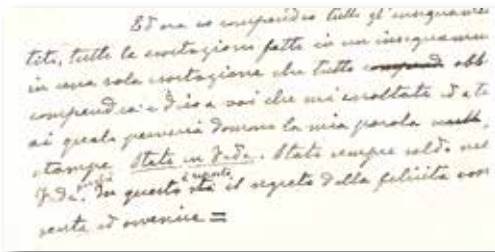 Ed ora io compendio tutti gl'insegnamen
titi, tutte le esortazioni fatte in un insegnamen
in una sola esortazione che tutto compend abb
compendia: e dico a voi che mi ascoltate ed a t
ai quali perverrà domani la mia parola
stampe State in Fede. State sempre saldi nel
Fede, perchè in questo sta il segreto della felicità
ed avvenire =